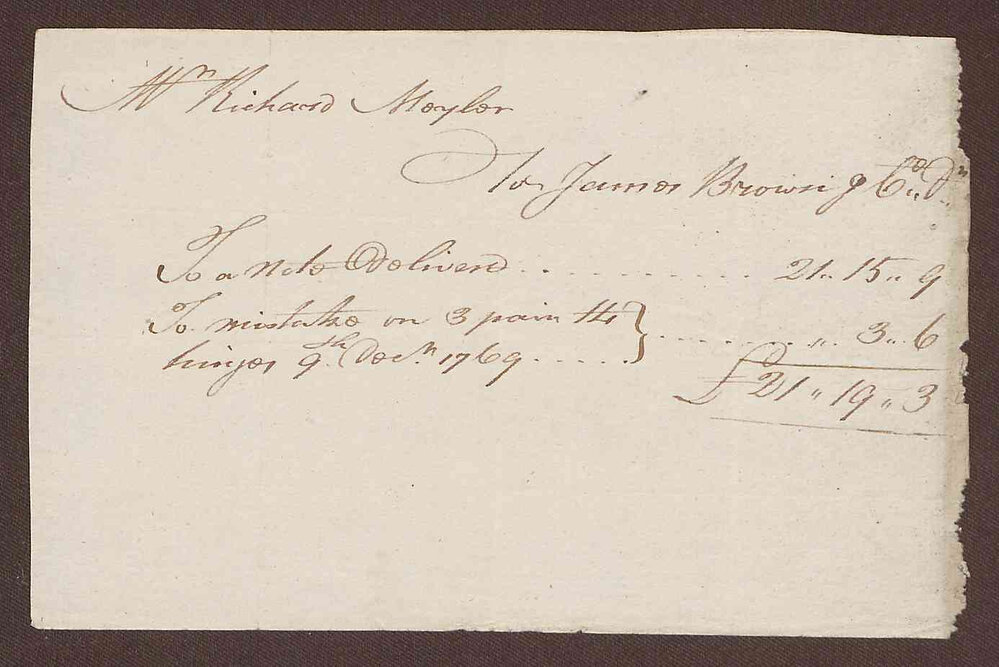 Mr. Richard Meyler
To James Brown & Co. Dr.
To a note Deliverd .......... 21 „ 15 „ 9
To mistake on 3 pair Hs } ......... „ 3 „ 6
hinges 9th Decr. 1769 .....
£21 „ 19 „ 3